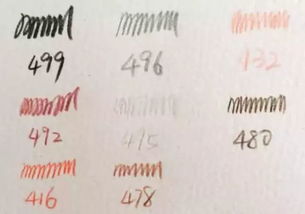 499 496 432
492 495 480
416 478